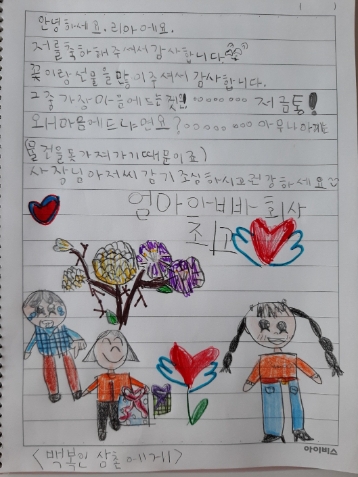 안녕하세요. 리아에요.
저를 축하해 주셔서 감사합니다
꽃이랑 선물을 많이 주셔서 감사합니다.
그중 가장 마음에 드는 것! 저금통!
왜 마음에 드냐면요? 아무나
물건을 못 가져가기 때문이죠)
사장님 아저씨 감기 조심하시고 건강하세요
엄마 아빠 회사
최고
아이비스
〈백복인 삼촌에게〉